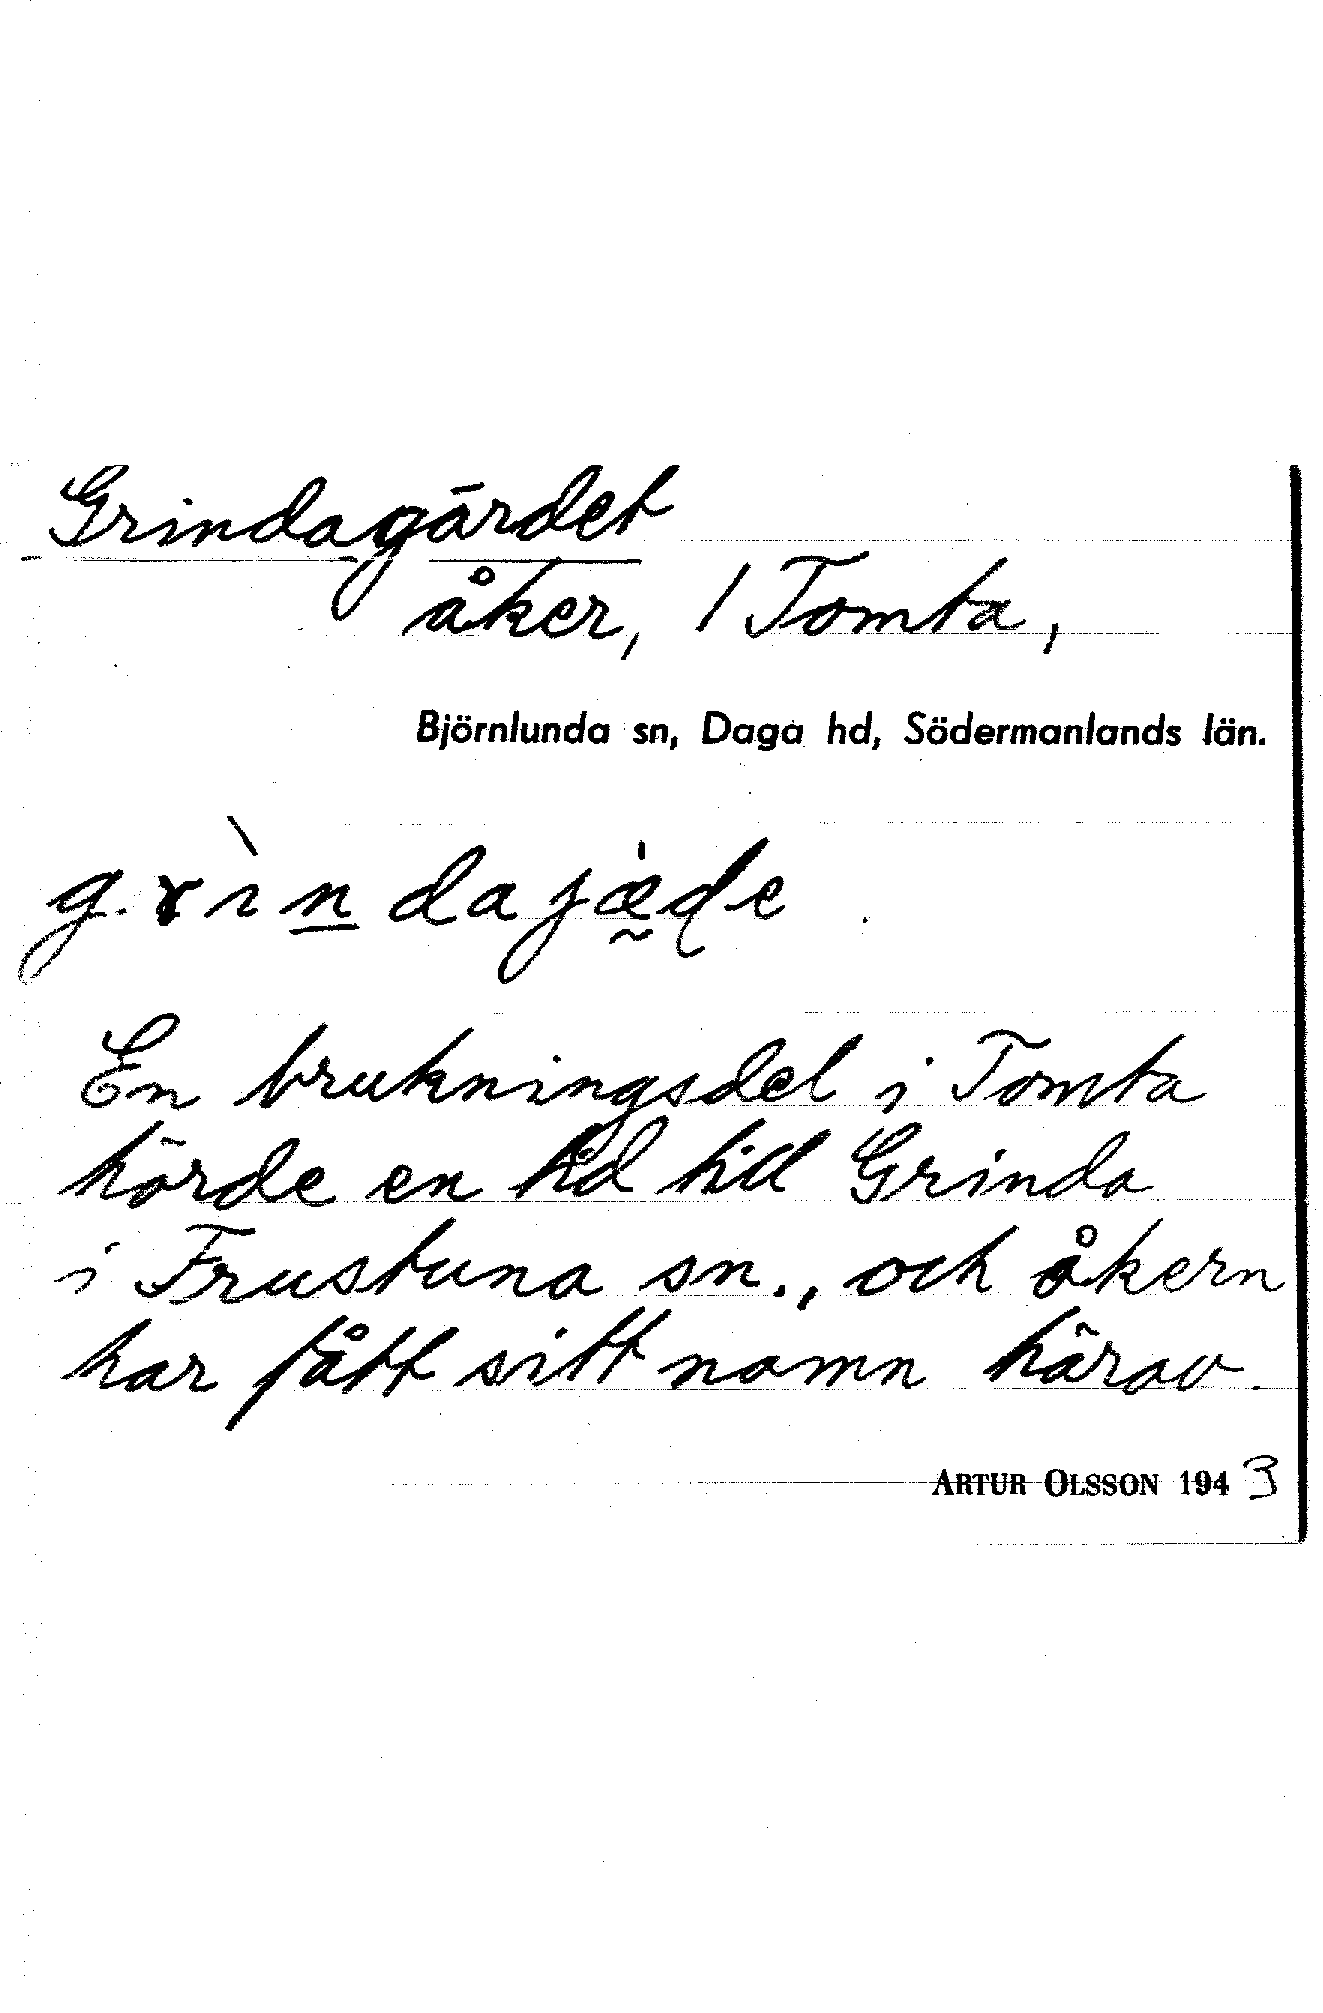 Grindagärdet
åker, / Tomta,
Björnlunda sn, Daga hd, Södermanlands län.
g.rìn̲dajæ̰̍ɖe
En brukningsdel i Tomta
hörde en tid till Grinda
i Frustuna sn., och åkern
har fått sitt namn härav.
ARTUR OLSSON 1943